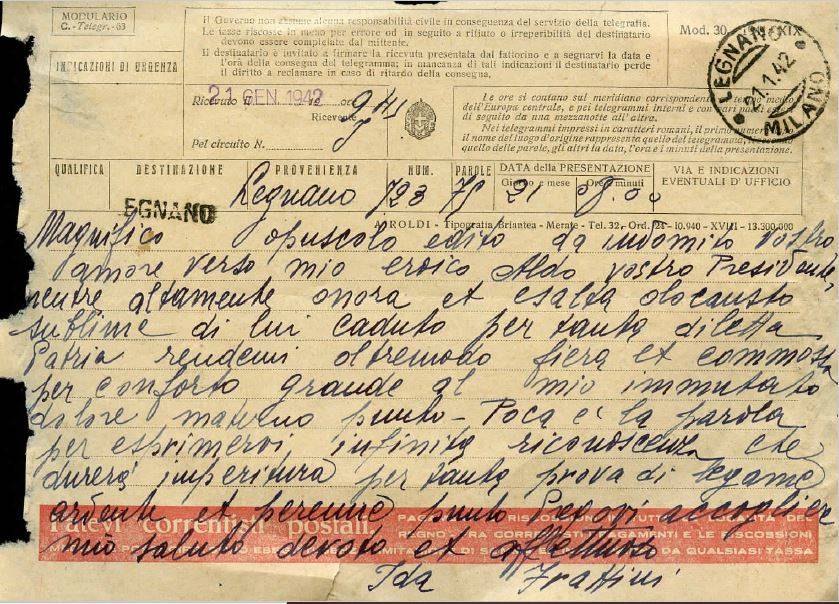 MODULARIO
C.-Telegr.-63
INDICAZIONI DI URGENZA
Il Governo non assume alcuna responsabilità civile in conseguenza del servizio della telegrafia.
Le tasse riscosse in meno per errore od in seguito a rifiuto o irreperibilità del destinatario
devono essere completate dal mittente.
Il destinatario è invitato a firmare la ricevuta presentata dal fattorino e a segnarvi la data e
l'ora della consegna del telegramma; in mancanza di tali indicazioni il destinatario perde
il diritto a reclamare in caso di ritardo della consegna.
Mod. 30
XIX
LEGNANO
21.1.42
MILANO
Ricevuto
21 GEN. 1942
ore
Ricevente
Pel circuito N.
Le ore si contano sul meridiano corrispondente al tempo medio
dell'Europa centrale, e pei telegrammi interni e con vari paesi esteri
di seguito da una mezzanotte all'altra.
Nei telegrammi impressi in caratteri romani, il primo numero dopo
il nome del luogo d'origine rappresenta quello del telegramma, il secondo
quello delle parole, gli altri la data, l'ora e i minuti della presentazione.
QUALIFICA DESTINAZIONE PROVENIENZA NUM. PAROLE DATA della PRESENTAZIONE VIA E INDICAZIONI
Giorno e mese Ore e minuti EVENTUALI D'UFFICIO
EGNANO
Legnano 723 21
AROLDI - Tipografia Briantea - Merate - Tel. 32, Ord. 128 - 10.940 - XVIII - 13.300.000
Magnifico opuscolo edito da indomito vostro
amore verso mio eroico Aldo vostro Presidente
mentre altamente onora et esalta olocausto
sublime di lui caduto per tanta diletta
Patria rendemi oltremodo fiera et commossa
per conforto grande al mio immutato
dolore materno punto - Poca è la parola
per esprimervi infinita riconoscenza che
durerà imperitura per tanta prova di legame
ardente et perenne punto Pregovi accogliere
mio saluto devoto et affettuoso
Ida Frattini
Fatevi correntisti postali.